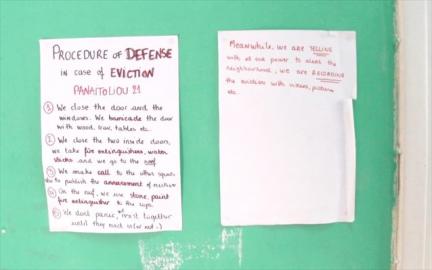 PROCEDURE of DEFENSE
in case of EVICTION
PANAITOLIOU 21
① We close the door and the
windows. We barricade the door
with wood, iron, tables etc.
② We close the two inside doors,
we take fire extinguishers, water
and we go to the roof.
③ We make call to the other squats
to publish the of eviction
④ On the roof, we use stone, paint
fire extinguisher to the cops.
⑤ We don't panic, resist together
until they
Meanwhile, we are YELLING
with all our power to alert the
neighbourhood, we are RECORDING
the eviction with videos, pictures
etc.